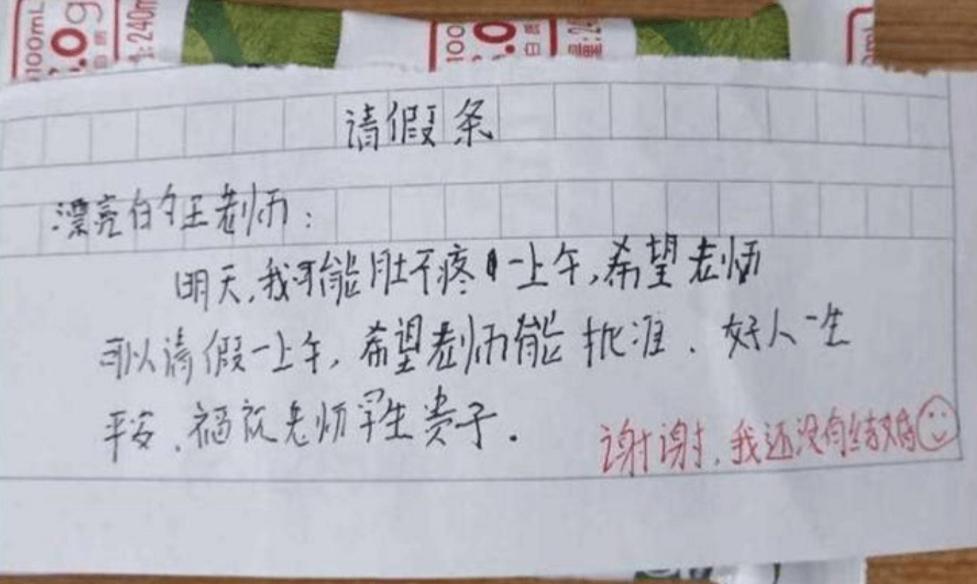 100mL
.0g
白质
:240m
100
.0
白质
量:24
0mL
请假条
漂亮的王老师：
明天,我可能肚不疼一上午,希望老师
可以请假一上午,希望老师能批准、好人一生
平安、祝老师早生贵子.
谢谢,我还没有结婚